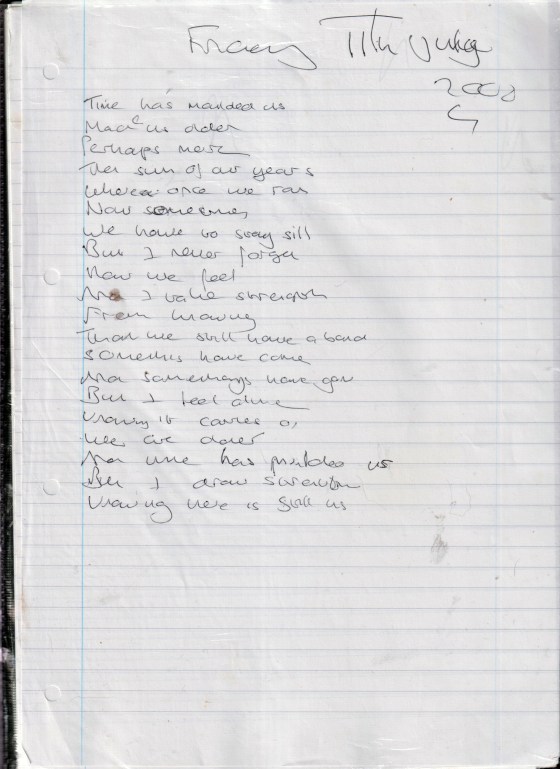 Friday 11th July
2008
Time has moulded us
Made us older
Perhaps more
The sum of our years
Where once we ran
Now sometimes
We have to stay still
But I never forget
How we feel
And I take strength
From knowing
That we still have a bond
Some have come
And some have gone
But I feel alive
Knowing it carries on
We are older
And time has moulded us
But I draw strength
Knowing there is still us